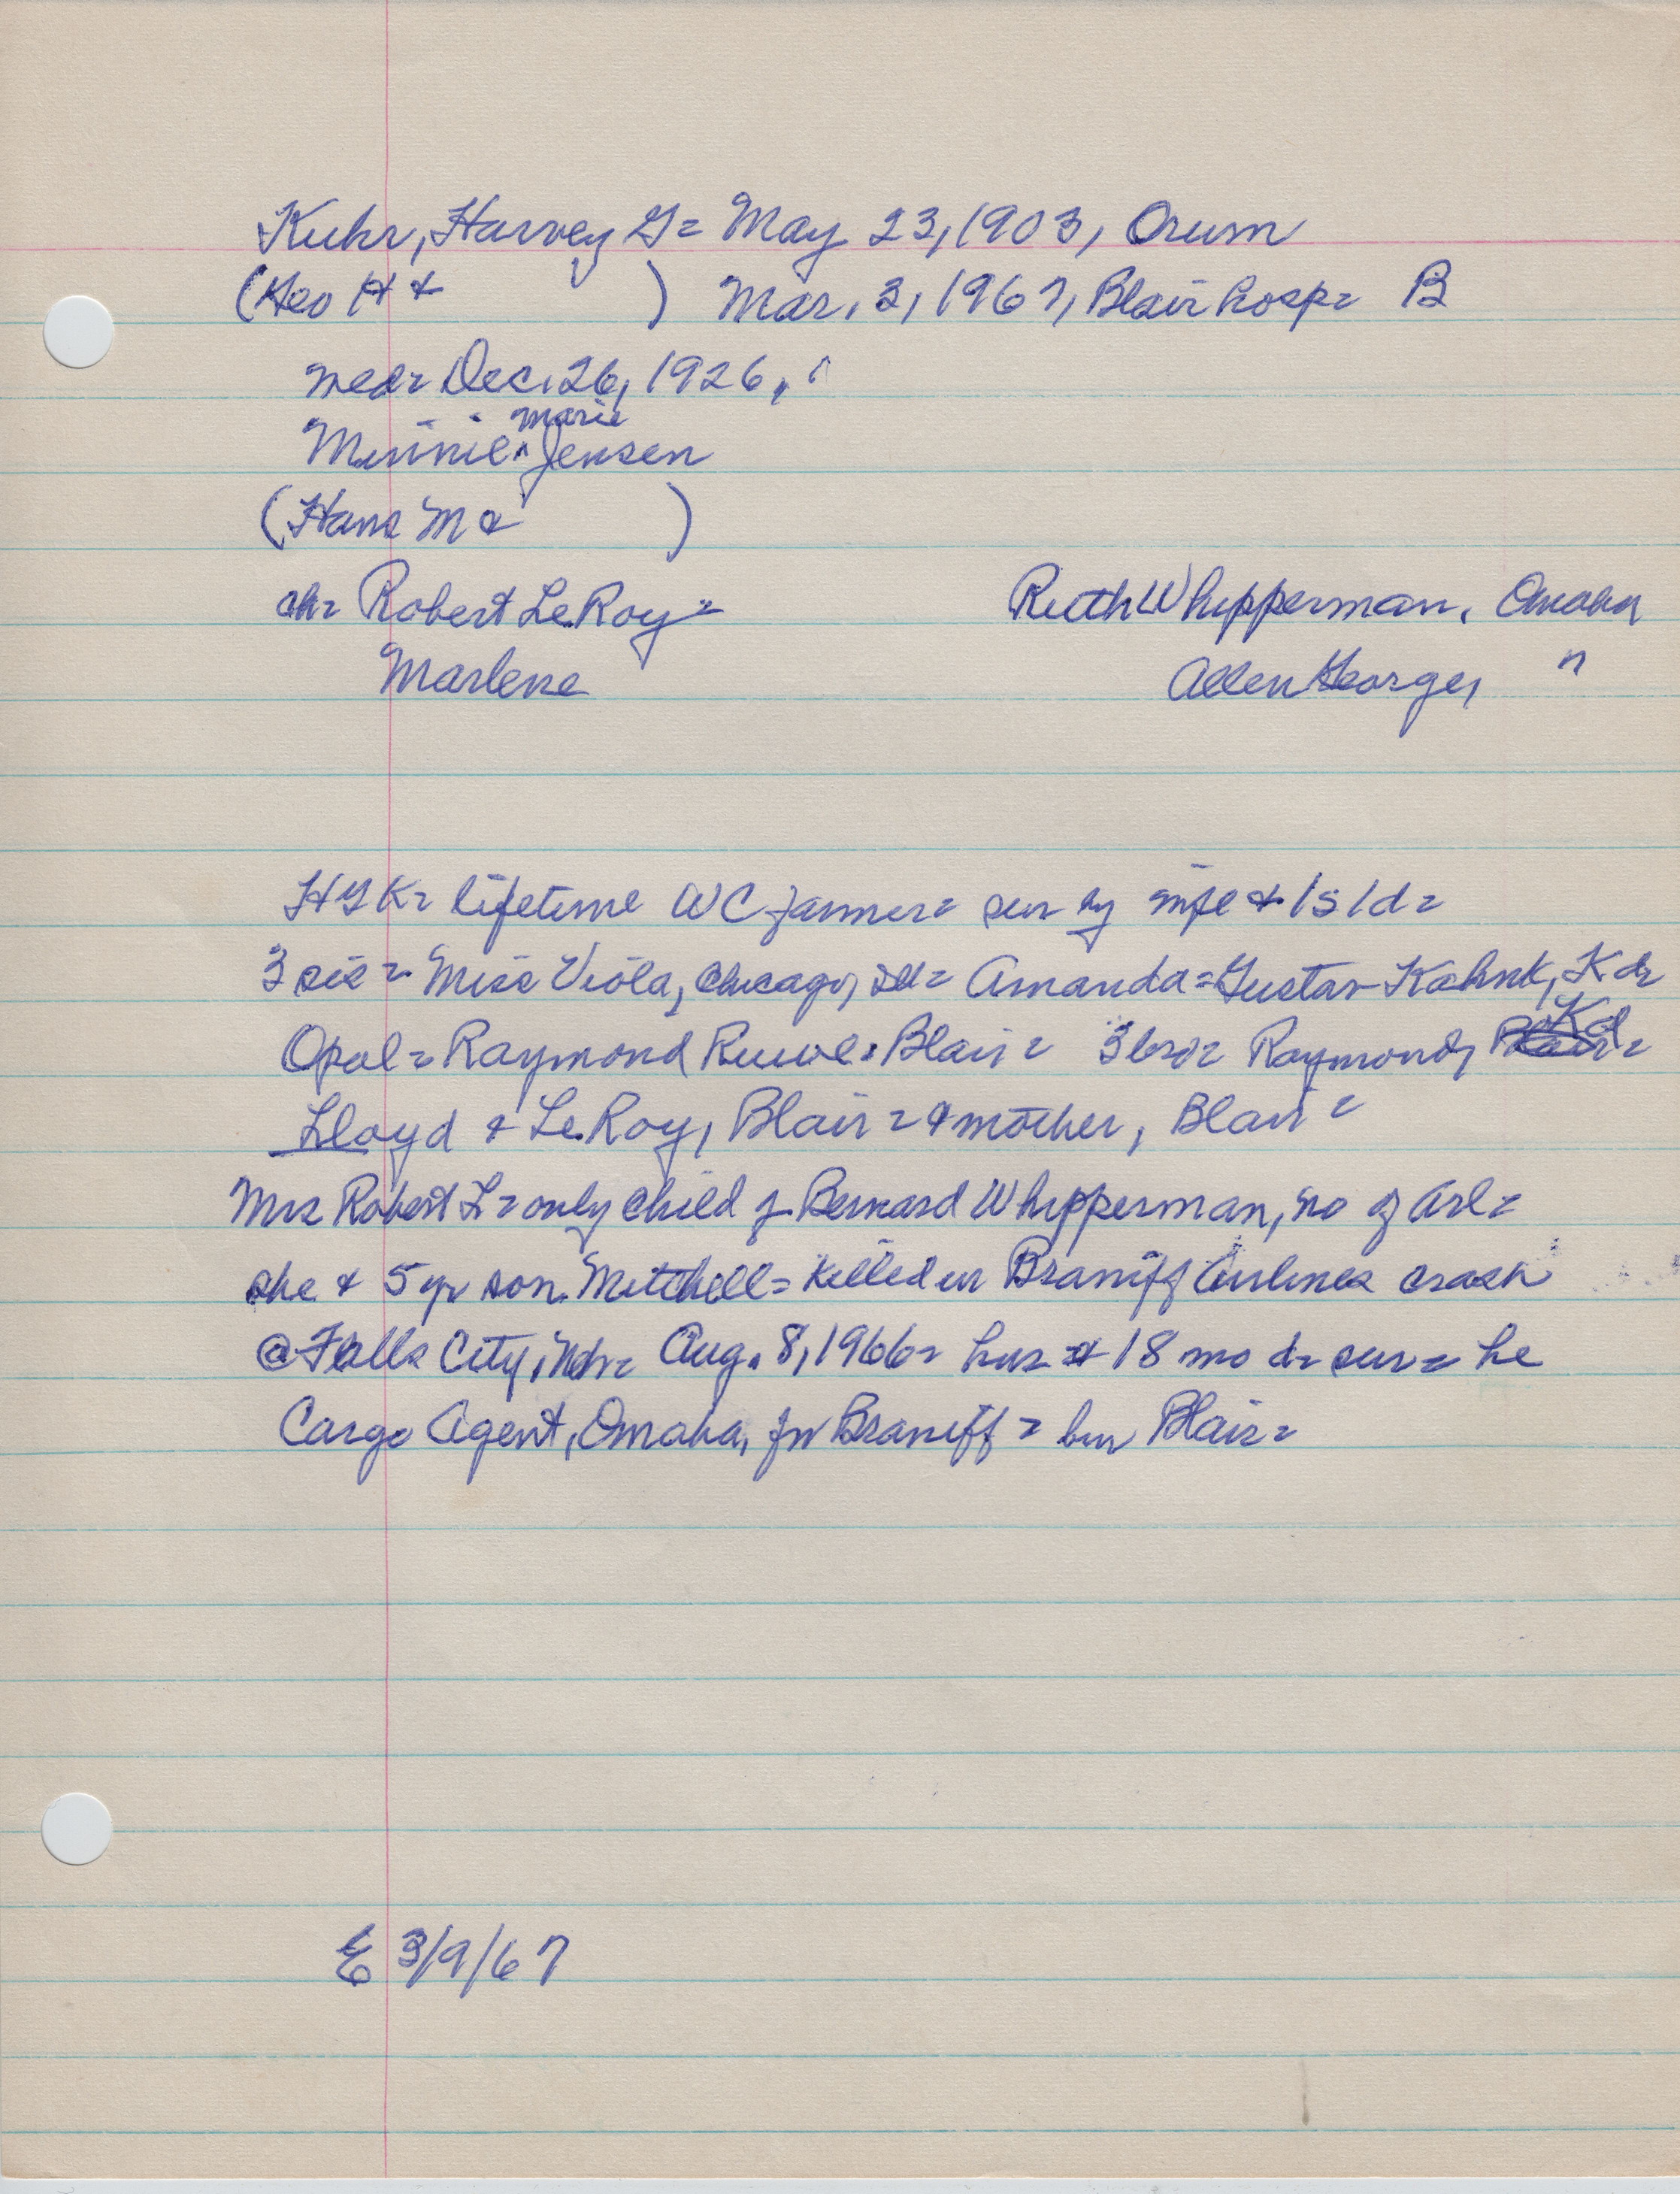 Kuhr, Harvey G= May 23, 1903, Orum
(Geo H & ) Mar. 3, 1967, Blair hosp= B
wed= Dec. 26, 1926,
Minnie ^Marie Jensen
(Hans M & )
ch= Robert LeRoy= Ruth Whipperman, Omaha
Marlene Allen George, "
HGK= lifetime WC farmer= sur by wife & 1s 1d=
3 sis= Miss Viola, Chicago, Ill= Amanda=Gustav Kahnk, Kd=
Opal=Raymond Ruwe=Blair= 3 bro= Raymond, Kd=
Lloyd & LeRoy, Blair= & mother, Blair=
Mrs Robert L=only child of Bernard Whipperman, no of Arl=
she & 5 yr son Mitchell= killed in Braniff Airlines crash
@ Falls City, Neb= Aug. 8, 1966= hus & 18 mo d= sur= he
Cargo Agent, Omaha, for Braniff= bur Blair=
E 3/9/67